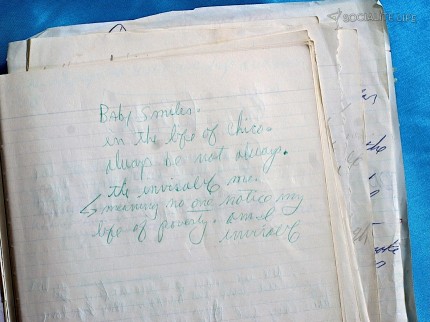 SOCIALITE LIFE
Baby Smiles.
in the life of Chico.
always be not always.
the invisable me.
meaning no one notice my
life of poverty. am I
invisable